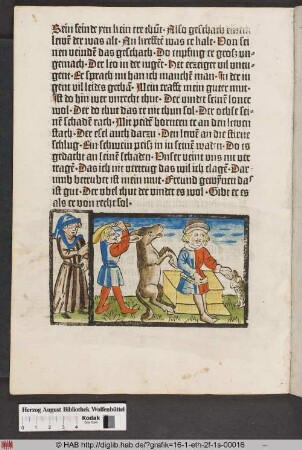 Sein feinde ym kein ere thůt. Also geschach einem
lewen der was alt. An kreften was er kalt. Von sei
nen veinden das geschach. Do empfing er gross un
gemach. Der leo in der iugent. Het erzeiget vil untu
gent. Er sprach nu han ich manchē man. In der iu
gent vil leides gethan. Mein craft mein guter mut
ist do hin wer unrecht thut. Der vindet seinē lone
wol. Der do thut das er nit thun sol. Der ochse sei
nē schaden rach. Mit peidē hornern er an den lewen
stach. Der esel auch darzu. Den lewē an die stirne
schlug. Ein schwein peiss in in seinen waden. Do es
gedacht an seinē schaden. Unser veint uns nit ver
tragē. Das ich nit vertrug das wil ich clagē. Dar
umb betrubet ist mein mut. Freund gewinnen das
ist gut. Der ubel thut der vindet es wol. Gibt er es
als er von recht sol.
Herzog August Bibliothek Wolfenbüttel
Kodak
© HAB http://diglib.hab.de/?grafik=16-1-eth-2f-1s-00016